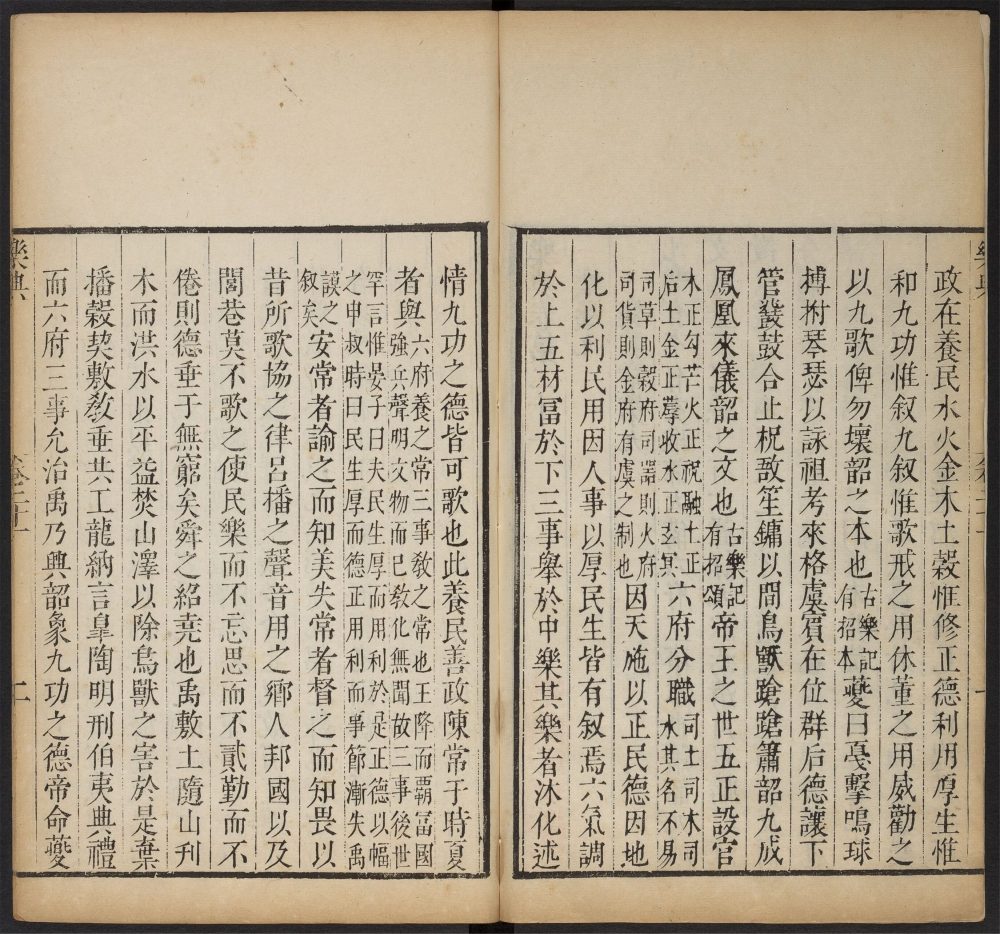 政在養民水火金木土穀惟修正德利用厚生惟
和九功惟叙九叙惟歌戒之用休董之用威勸之
以九歌俾勿壞韶之本也古樂記有招本夔曰戞擊鳴球
搏拊琴瑟以詠祖考來格虞賓在位群后德讓下
管鼗鼓合止柷敔笙鏞以間鳥獸蹌蹌簫韶九成
鳳凰來儀韶之文也古樂記有招頌帝王之世五正設官
木正勾芒火正祝融土正后土金正蓐收水正玄冥六府分職司土司木司水其名不易
司草則榖府司器則火府司貨則金府有虞之制也因天施以正民德因地
化以利民用因人事以厚民生皆有叙焉六氣調
於上五材冨於下三事舉於中樂其樂者沐化述
情九功之德皆可歌也此養民善政陳常于時夏
者與六府養之常三事敎之常也王降而覇冨國強兵聲明文物而已敎化無聞故三事後世
罕言惟晏子曰夫民生厚而用利於是正德以幅之申叔時曰民生厚而德正用利而事節漸失禹
謨之叙矣安常者諭之而知美失常者督之而知畏以
昔所歌協之律呂播之聲音用之鄉人邦國以及
閭巷莫不歌之使民樂而不忘思而不貳勤而不
倦則德垂于無窮矣舜之紹堯也禹敷土隨山刋
木而洪水以平益焚山澤以除鳥獸之害於是棄
播穀契敷敎垂共工龍納言皐陶明刑伯夷典禮
而六府三事允治禹乃興韶象九功之德帝命夔
樂典
卷二十
二